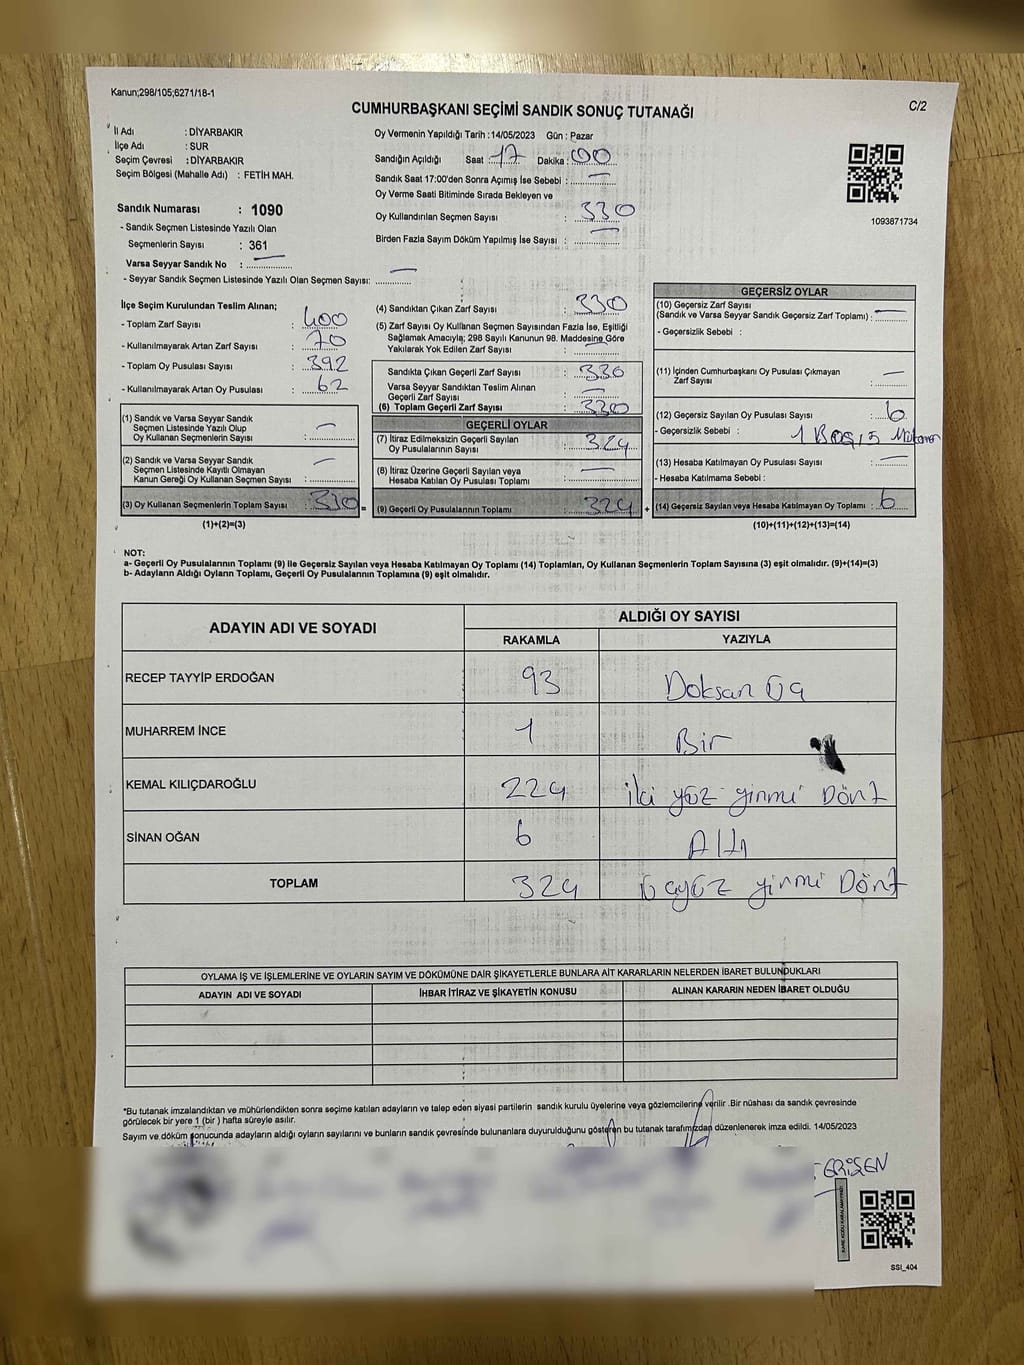 Kanun;298/105;6271/18-1
CUMHURBAŞKANI SEÇİMİ SANDIK SONUÇ TUTANAĞI
C/2
İl Adı : DİYARBAKIR
İlçe Adı : SUR
Seçim Çevresi : DİYARBAKIR
Seçim Bölgesi (Mahalle Adı) : FETİH MAH.
Sandık Numarası : 1090
- Sandık Seçmen Listesinde Yazılı Olan
Seçmenlerin Sayısı : 361
Varsa Seyyar Sandık No : —
- Seyyar Sandık Seçmen Listesinde Yazılı Olan Seçmen Sayısı: —
Oy Vermenin Yapıldığı Tarih :14/05/2023 Gün : Pazar
Sandığın Açıldığı Saat : 17 Dakika : 00
Sandık Saat 17:00'den Sonra Açımış İse Sebebi : —
Oy Verme Saati Bitiminde Sırada Bekleyen ve
Oy Kullandırılan Seçmen Sayısı : 330
Birden Fazla Sayım Döküm Yapılmış İse Sayısı : —
1093871734
İlçe Seçim Kurulundan Teslim Alınan;
- Toplam Zarf Sayısı : 400
- Kullanılmayarak Artan Zarf Sayısı : 70
- Toplam Oy Pusulası Sayısı : 392
- Kullanılmayarak Artan Oy Pusulası : 62
(1) Sandık ve Varsa Seyyar Sandık
Seçmen Listesinde Yazılı Olup
Oy Kullanan Seçmenlerin Sayısı : —
(2) Sandık ve Varsa Seyyar Sandık
Seçmen Listesinde Kayıtlı Olmayan
Kanun Gereği Oy Kullanan Seçmen Sayısı : —
(3) Oy Kullanan Seçmenlerin Toplam Sayısı : 330 =
(1)+(2)=(3)
(4) Sandıktan Çıkan Zarf Sayısı : 330
(5) Zarf Sayısı Oy Kullanan Seçmen Sayısından Fazla İse, Eşitliği
Sağlamak Amacıyla; 298 Sayılı Kanunun 98. Maddesine Göre
Yakılarak Yok Edilen Zarf Sayısı : —
Sandıkta Çıkan Geçerli Zarf Sayısı : 330
Varsa Seyyar Sandıktan Teslim Alınan
Geçerli Zarf Sayısı : —
(6) Toplam Geçerli Zarf Sayısı : 330
GEÇERLİ OYLAR
(7) İtiraz Edilmeksizin Geçerli Sayılan
Oy Pusulalarının Sayısı : 324
(8) İtiraz Üzerine Geçerli Sayılan veya
Hesaba Katılan Oy Pusulası Toplamı : —
(9) Geçerli Oy Pusulalarının Toplamı : 324 +
GEÇERSİZ OYLAR
(10) Geçersiz Zarf Sayısı
(Sandık ve Varsa Seyyar Sandık Geçersiz Zarf Toplamı) : —
- Geçersizlik Sebebi :
(11) İçinden Cumhurbaşkanı Oy Pusulası Çıkmayan
Zarf Sayısı : —
(12) Geçersiz Sayılan Oy Pusulası Sayısı : 6
- Geçersizlik Sebebi : 1 Boş, 5 Mükerrer
(13) Hesaba Katılmayan Oy Pusulası Sayısı : —
- Hesaba Katılmama Sebebi :
(14) Geçersiz Sayılan veya Hesaba Katılmayan Oy Toplamı : 6
(10)+(11)+(12)+(13)=(14)
NOT:
a- Geçerli Oy Pusulalarının Toplamı (9) ile Geçersiz Sayılan veya Hesaba Katılmayan Oy Toplamı (14) Toplamları, Oy Kullanan Seçmenlerin Toplam Sayısına (3) eşit olmalıdır. (9)+(14)=(3)
b- Adayların Aldığı Oyların Toplamı, Geçerli Oy Pusulalarının Toplamına (9) eşit olmalıdır.
ADAYIN ADI VE SOYADI ALDIĞI OY SAYISI
RAKAMLA YAZIYLA
RECEP TAYYİP ERDOĞAN 93 Doksan Üç
MUHARREM İNCE 1 Bir
KEMAL KILIÇDAROĞLU 224 iki yüz yirmi Dört
SİNAN OĞAN 6 Altı
TOPLAM 324 üçyüz yirmi Dört
OYLAMA İŞ VE İŞLEMLERİNE VE OYLARIN SAYIM VE DÖKÜMÜNE DAİR ŞİKAYETLERLE BUNLARA AİT KARARLARIN NELERDEN İBARET BULUNDUKLARI
ADAYIN ADI VE SOYADI İHBAR İTİRAZ VE ŞİKAYETİN KONUSU ALINAN KARARIN NEDEN İBARET OLDUĞU
*Bu tutanak imzalandıktan ve mühürlendikten sonra seçime katılan adayların ve talep eden siyasi partilerin sandık kurulu üyelerine veya gözlemcilerine verilir .Bir nüshası da sandık çevresinde
görülecek bir yere 1 (bir ) hafta süreyle asılır.
Sayım ve döküm sonucunda adayların aldığı oyların sayılarını ve bunların sandık çevresinde bulunanlara duyurulduğunu gösteren bu tutanak tarafımızdan düzenlenerek imza edildi. 14/05/2023
ERİŞEN
SSI_404